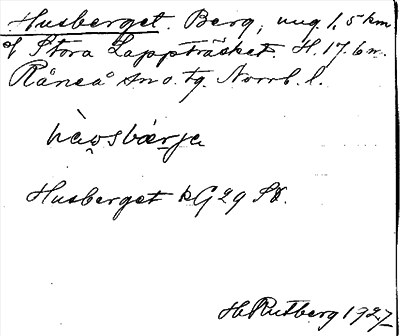 Husberget. Berg, ung. 1,5 km
of Stora Lappträsket. H. 17.6 m.
Råneå sn o. tg. Norrb. l.
Husberget kG 29 SO.
H. Rutberg 1927